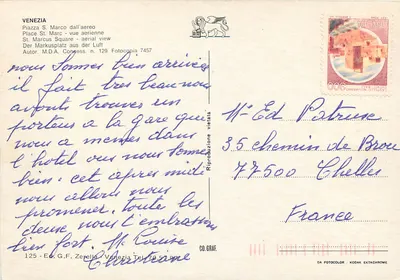 VENEZIA
Piazza S. Marco dall'aereo
Place St. Marc - vue aerienne
St. Marcus Square - aerial view
Der Markusplatz aus der Luft
Autor. M.D.A. Compess. n. 128 Fotocopia 7457
nous sommes bien arrivées
il fait tres beau nous
avont trouver un
porteur a la gare qui
nous a menes dans
l'hotel ou nous sommes
bien. cet apres midi
nous allons nous
promener, toute les
deux, nous t'embrassons
bien fort. M. Louise
Christiane
Riproduzione vietata
CO.GRAF.
125 - Ed. G.F. Venezia
M. Ed
35 chemin de Brou
77500 Chelles
France
DA FOTOCOLOR KODAK EKTACHROME